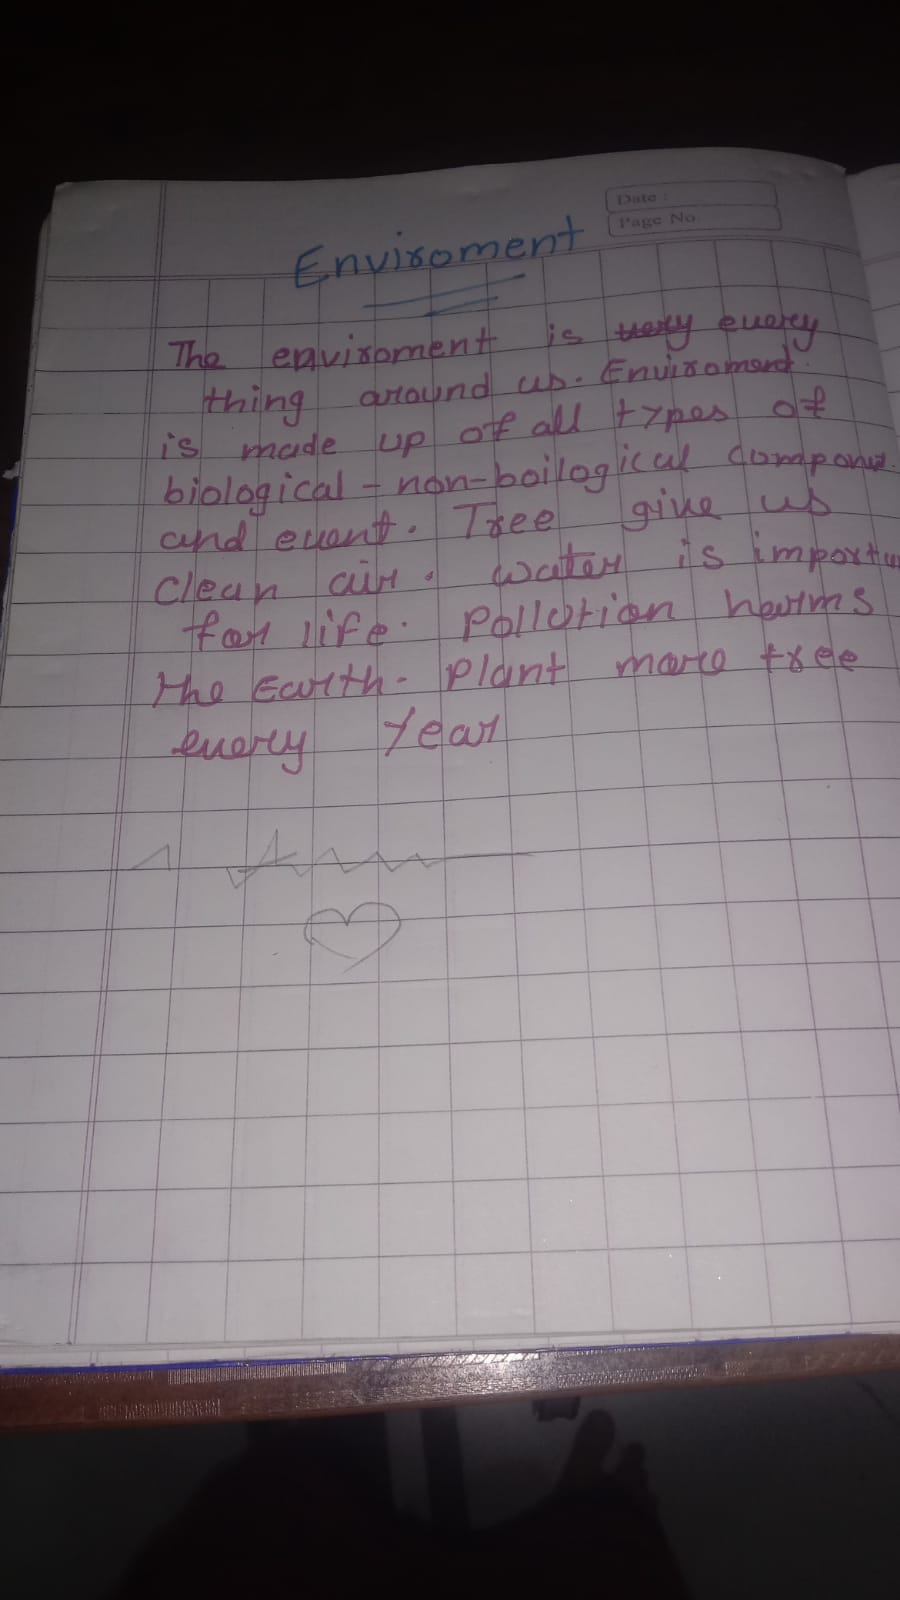 Date :
Page No.
Enviroment
The enviroment is very every
thing around us. Enviroment
is made up of all types of
biological - non-boilogical
and event. Tree give us
clean air. water is
for life. Pollution harms
the Earth. Plant more tree
every Year